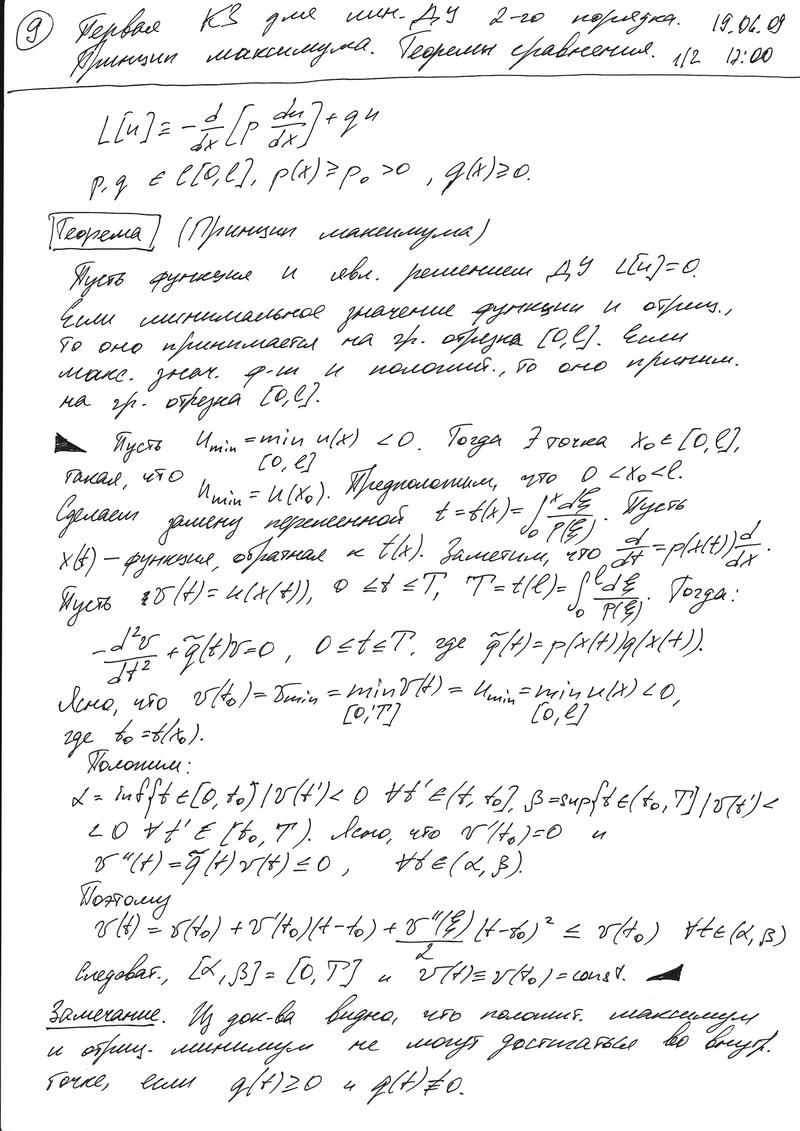 9 Первая КЗ для лин. ДУ 2-го порядка. 19.06.09
Принцип максимума. Теоремы сравнения. 1/2 12:00
L[u] ≡ -d/dx [p du/dx] + qu
p, q ∈ C[0,l], p(x) ≥ p₀ > 0, q(x) ≥ 0.
Теорема (Принцип максимума)
Пусть функция u явл. решением ДУ L[u]=0.
Если минимальное значение функции u отриц.,
то оно принимается на гр. отрезка [0,l]. Если
макс. знач. ф-ии u положит., то оно приним.
на гр. отрезка [0,l].
Пусть u_min = min_[0,l] u(x) < 0. Тогда ∃ точка x₀ ∈ [0,l],
такая, что u_min = u(x₀). Предположим, что 0 < x₀ < l.
Сделаем замену переменной t = t(x) = ∫₀ˣ dξ/p(ξ). Пусть
x(t) – функция, обратная к t(x). Заметим, что d/dt = p(x(t)) d/dx.
Пусть v(t) = u(x(t)), 0 ≤ t ≤ T, T = t(l) = ∫₀ˡ dξ/p(ξ). Тогда:
-d²v/dt² + q̃(t)v = 0, 0 ≤ t ≤ T, где q̃(t) = p(x(t))q(x(t)).
Ясно, что v(t₀) = v_min = min_[0,T] v(t) = u_min = min_[0,l] u(x) < 0,
где t₀ = t(x₀).
Положим:
α = inf{t ∈ [0, t₀) | v(t') < 0 ∀t' ∈ (t, t₀], β = sup{t ∈ (t₀, T] | v(t') <
< 0 ∀t' ∈ [t₀, T). Ясно, что v'(t₀) = 0 и
v''(t) = q̃(t)v(t) ≤ 0, ∀t ∈ (α, β).
Поэтому
v(t) = v(t₀) + v'(t₀)(t-t₀) + v''(ξ)/2 (t-t₀)² ≤ v(t₀) ∀t ∈ (α, β)
Следоват., [α, β] = [0, T] и v(t) ≡ v(t₀) = const.
Замечание. Из док-ва видно, что положит. максимум
и отриц. минимум не могут достигаться во внутр.
точке, если q(t) ≥ 0 и q(t) ≢ 0.